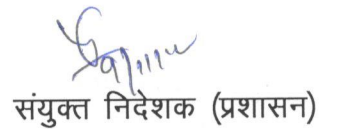 संयुक्त निदेशक (प्रशासन)